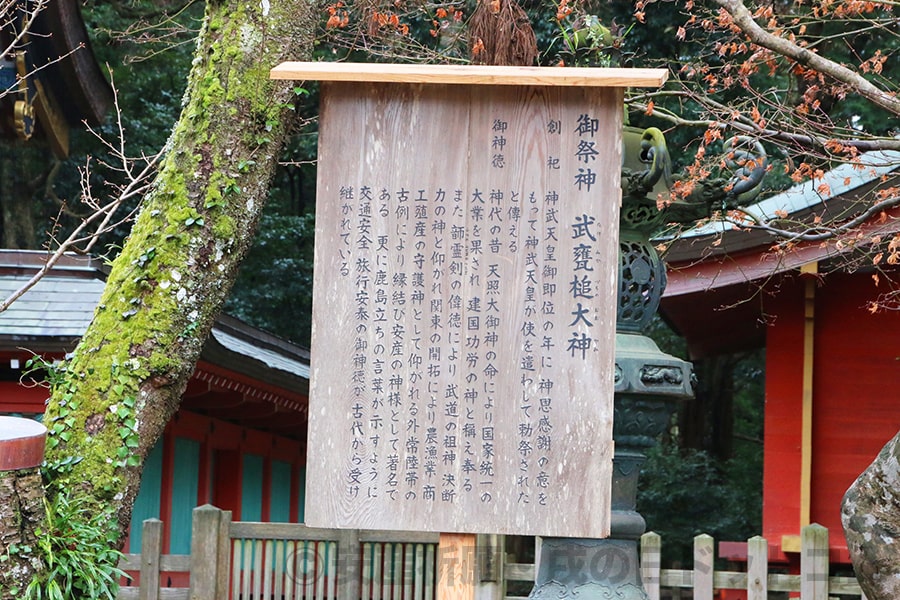 御祭神 武甕槌大神
創祀 神武天皇御即位の年に 神恩感謝の意を
もって神武天皇が使を遣わして勅祭された
と傳える
御神徳 神代の昔 天照大御神の命により国家統一の
大業を果され 建国功労の神と稱え奉る
また 韴霊剣の偉徳により 武道の祖神 決断
力の神と仰がれ 関東の開拓により 農漁業 商
工殖産の守護神として仰がれる外 常陸帯の
古例により 縁結び安産の神様として著名で
ある 更に鹿島立ちの言葉が示すように
交通安全 旅行安泰の御神徳が 古代から受け
継がれている